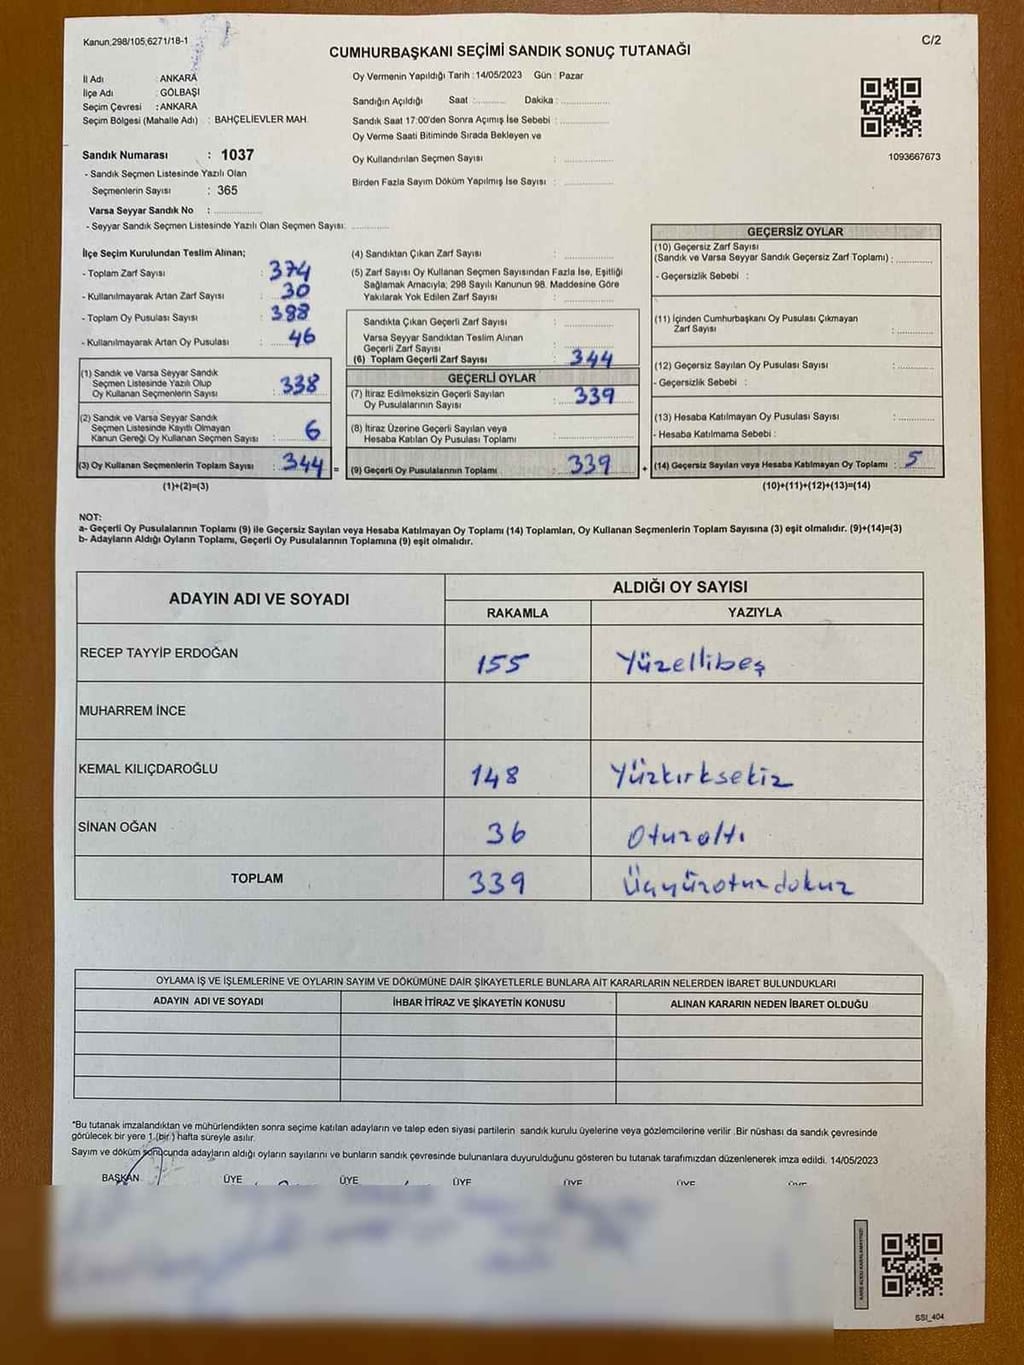 Kanun,298/105,6271/18-1
C/2
CUMHURBAŞKANI SEÇİMİ SANDIK SONUÇ TUTANAĞI
İl Adı : ANKARA
İlçe Adı : GÖLBAŞI
Seçim Çevresi : ANKARA
Seçim Bölgesi (Mahalle Adı) : BAHÇELİEVLER MAH.
Sandık Numarası : 1037
- Sandık Seçmen Listesinde Yazılı Olan
Seçmenlerin Sayısı : 365
Varsa Seyyar Sandık No : ..............
- Seyyar Sandık Seçmen Listesinde Yazılı Olan Seçmen Sayısı: ..............
Oy Vermenin Yapıldığı Tarih : 14/05/2023 Gün : Pazar
Sandığın Açıldığı Saat :........... Dakika : ..............
Sandık Saat 17:00'den Sonra Açımış İse Sebebi : ..............
Oy Verme Saati Bitiminde Sırada Bekleyen ve
Oy Kullandırılan Seçmen Sayısı : ..............
Birden Fazla Sayım Döküm Yapılmış İse Sayısı : ..............
1093667673
İlçe Seçim Kurulundan Teslim Alınan;
- Toplam Zarf Sayısı : 374
- Kullanılmayarak Artan Zarf Sayısı : 30
- Toplam Oy Pusulası Sayısı : 388
- Kullanılmayarak Artan Oy Pusulası : 46
(1) Sandık ve Varsa Seyyar Sandık
Seçmen Listesinde Yazılı Olup
Oy Kullanan Seçmenlerin Sayısı : 338
(2) Sandık ve Varsa Seyyar Sandık
Seçmen Listesinde Kayıtlı Olmayan
Kanun Gereği Oy Kullanan Seçmen Sayısı : 6
(3) Oy Kullanan Seçmenlerin Toplam Sayısı : 344 =
(1)+(2)=(3)
(4) Sandıktan Çıkan Zarf Sayısı : ..............
(5) Zarf Sayısı Oy Kullanan Seçmen Sayısından Fazla İse, Eşitliği
Sağlamak Amacıyla; 298 Sayılı Kanunun 98. Maddesine Göre
Yakılarak Yok Edilen Zarf Sayısı : ..............
Sandıkta Çıkan Geçerli Zarf Sayısı : ..............
Varsa Seyyar Sandıktan Teslim Alınan
Geçerli Zarf Sayısı : ..............
(6) Toplam Geçerli Zarf Sayısı : 344
GEÇERLİ OYLAR
(7) İtiraz Edilmeksizin Geçerli Sayılan
Oy Pusulalarının Sayısı : 339
(8) İtiraz Üzerine Geçerli Sayılan veya
Hesaba Katılan Oy Pusulası Toplamı : ..............
(9) Geçerli Oy Pusulalarının Toplamı : 339 +
GEÇERSİZ OYLAR
(10) Geçersiz Zarf Sayısı
(Sandık ve Varsa Seyyar Sandık Geçersiz Zarf Toplamı) : ..............
- Geçersizlik Sebebi :
(11) İçinden Cumhurbaşkanı Oy Pusulası Çıkmayan
Zarf Sayısı : ..............
(12) Geçersiz Sayılan Oy Pusulası Sayısı : ..............
- Geçersizlik Sebebi :
(13) Hesaba Katılmayan Oy Pusulası Sayısı : ..............
- Hesaba Katılmama Sebebi :
(14) Geçersiz Sayılan veya Hesaba Katılmayan Oy Toplamı : 5
(10)+(11)+(12)+(13)=(14)
NOT:
a- Geçerli Oy Pusulalarının Toplamı (9) ile Geçersiz Sayılan veya Hesaba Katılmayan Oy Toplamı (14) Toplamları, Oy Kullanan Seçmenlerin Toplam Sayısına (3) eşit olmalıdır. (9)+(14)=(3)
b- Adayların Aldığı Oyların Toplamı, Geçerli Oy Pusulalarının Toplamına (9) eşit olmalıdır.
ADAYIN ADI VE SOYADI
ALDIĞI OY SAYISI
RAKAMLA YAZIYLA
RECEP TAYYİP ERDOĞAN 155 Yüzellibeş
MUHARREM İNCE
KEMAL KILIÇDAROĞLU 148 Yüzkırksekiz
SİNAN OĞAN 36 Otuzaltı
TOPLAM 339 Üçyüzotuzdokuz
OYLAMA İŞ VE İŞLEMLERİNE VE OYLARIN SAYIM VE DÖKÜMÜNE DAİR ŞİKAYETLERLE BUNLARA AİT KARARLARIN NELERDEN İBARET BULUNDUKLARI
ADAYIN ADI VE SOYADI İHBAR İTİRAZ VE ŞİKAYETİN KONUSU ALINAN KARARIN NEDEN İBARET OLDUĞU
*Bu tutanak imzalandıktan ve mühürlendikten sonra seçime katılan adayların ve talep eden siyasi partilerin sandık kurulu üyelerine veya gözlemcilerine verilir .Bir nüshası da sandık çevresinde
görülecek bir yere 1 (bir ) hafta süreyle asılır.
Sayım ve döküm sonucunda adayların aldığı oyların sayılarını ve bunların sandık çevresinde bulunanlara duyurulduğunu gösteren bu tutanak tarafımızdan düzenlenerek imza edildi. 14/05/2023
BAŞKAN ÜYE ÜYE ÜYE ÜYE ÜYE ÜYE
SSİ_404